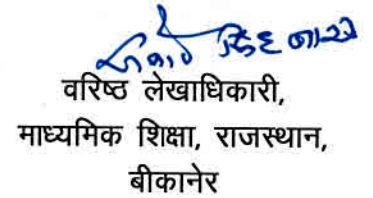 सिंह
वरिष्ठ लेखाधिकारी,
माध्यमिक शिक्षा, राजस्थान,
बीकानेर